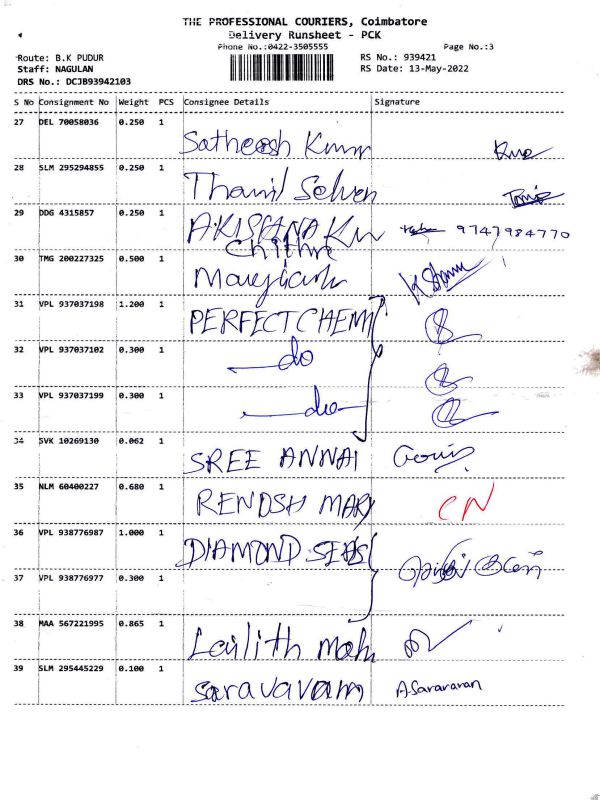 THE PROFESSIONAL COURIERS, Coimbatore
Delivery Runsheet - PCK
Phone No.:0422-3505555 Page No.:3
Route: B.K PUDUR RS No.: 939421
Staff: NAGULAN RS Date: 13-May-2022
DRS No.: DCJB93942103
S No Consignment No Weight PCS Consignee Details Signature
27 DEL 70058036 0.250 1 Satheesh Kumar
28 SLM 295294855 0.250 1 Thamil Selven
29 DDG 4315857 0.250 1 9747984770
Chithre
30 TMG 200227325 0.500 1
31 VPL 937037198 1.200 1 PERFECT CHEMI
32 VPL 937037102 0.300 1 do
33 VPL 937037199 0.300 1 do
34 SVK 10269130 0.062 1 SREE ANNAI Gowri
35 NLM 60400227 0.680 1 RENDSH MARY CN
36 VPL 938776987 1.000 1 DIAMOND SEAS
37 VPL 938776977 0.300 1
38 MAA 567221995 0.865 1 Lailith moh
39 SLM 295445229 0.100 1 saravavam A.Sararavan